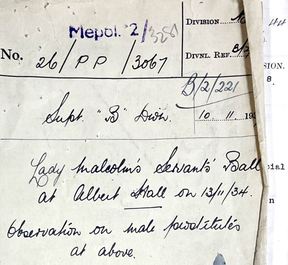 DIVISION
Mepol 2/
No. 26/PP/3067
DIVNL. REF.
B/2/221
SION.
Supt. "B" Divn.
10. 11. 19
Lady Malcolm's Servants' Ball
at Albert Hall on 13/11/34.
Observation on male prostitutes
at above.